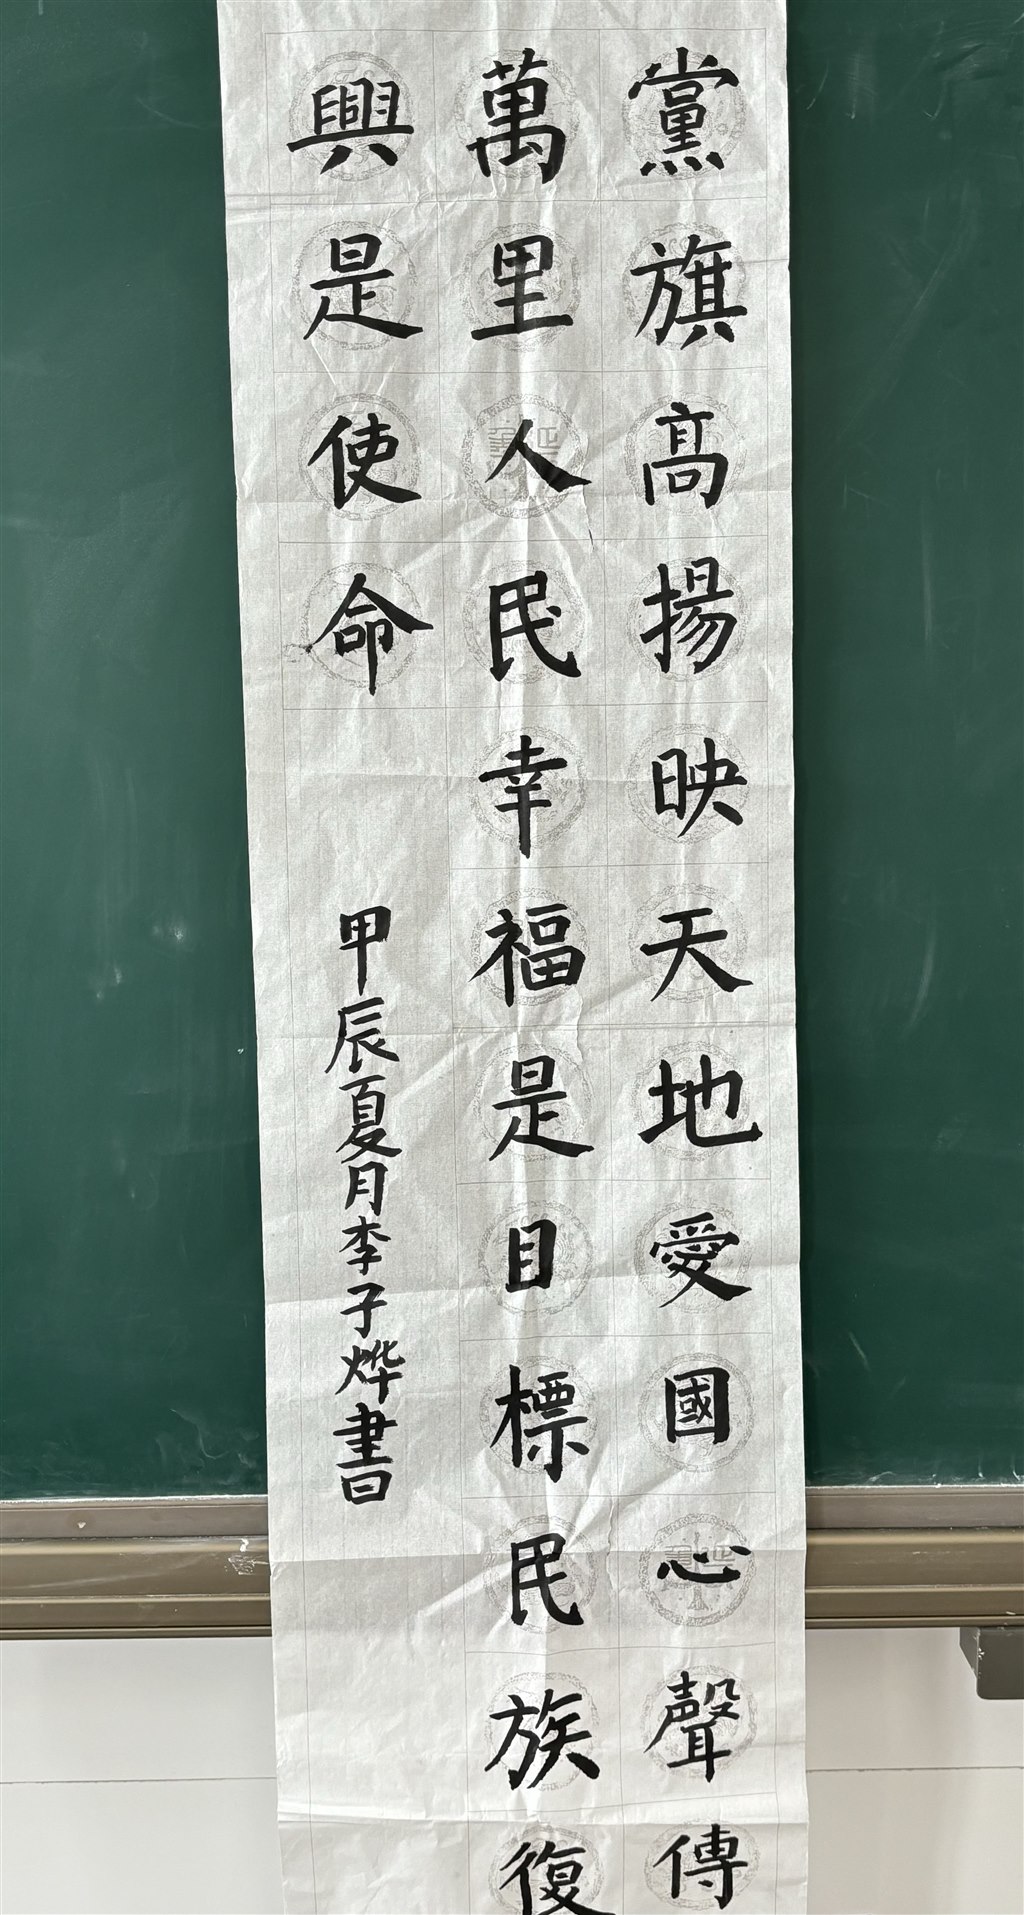 黨旗高揚映天地愛國心聲傳
萬里人民幸福是目標民族復
興是使命
甲辰夏月李子烨書